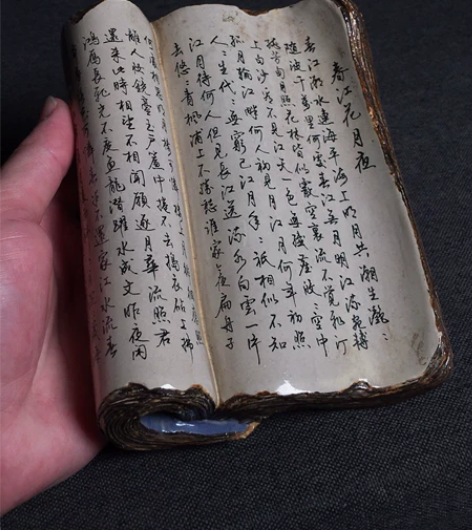 春江花月夜
春江潮水連海平海上明月共潮生灩〻
隨波千萬里何處春江無月明江流宛轉
繞芳甸月照花林皆似霰空裏流霜不覺飛汀
上白沙看不見江天一色無纖塵皎〻空中
孤月輪江畔何人初見月江月何年初照
人〻生代〻無窮已江月年〻祇相似不知
江月待何人但見長江送流水白雲一片
去悠〻青楓浦上不勝愁誰家今夜扁舟子
何處相思明月樓
離人妝鏡臺玉户簾中捲不去擣衣砧上拂
還來此時相望不相聞願逐月華流照君
鴻雁長飛光不度魚龍潛躍水成文昨夜閑
不還家江水流春